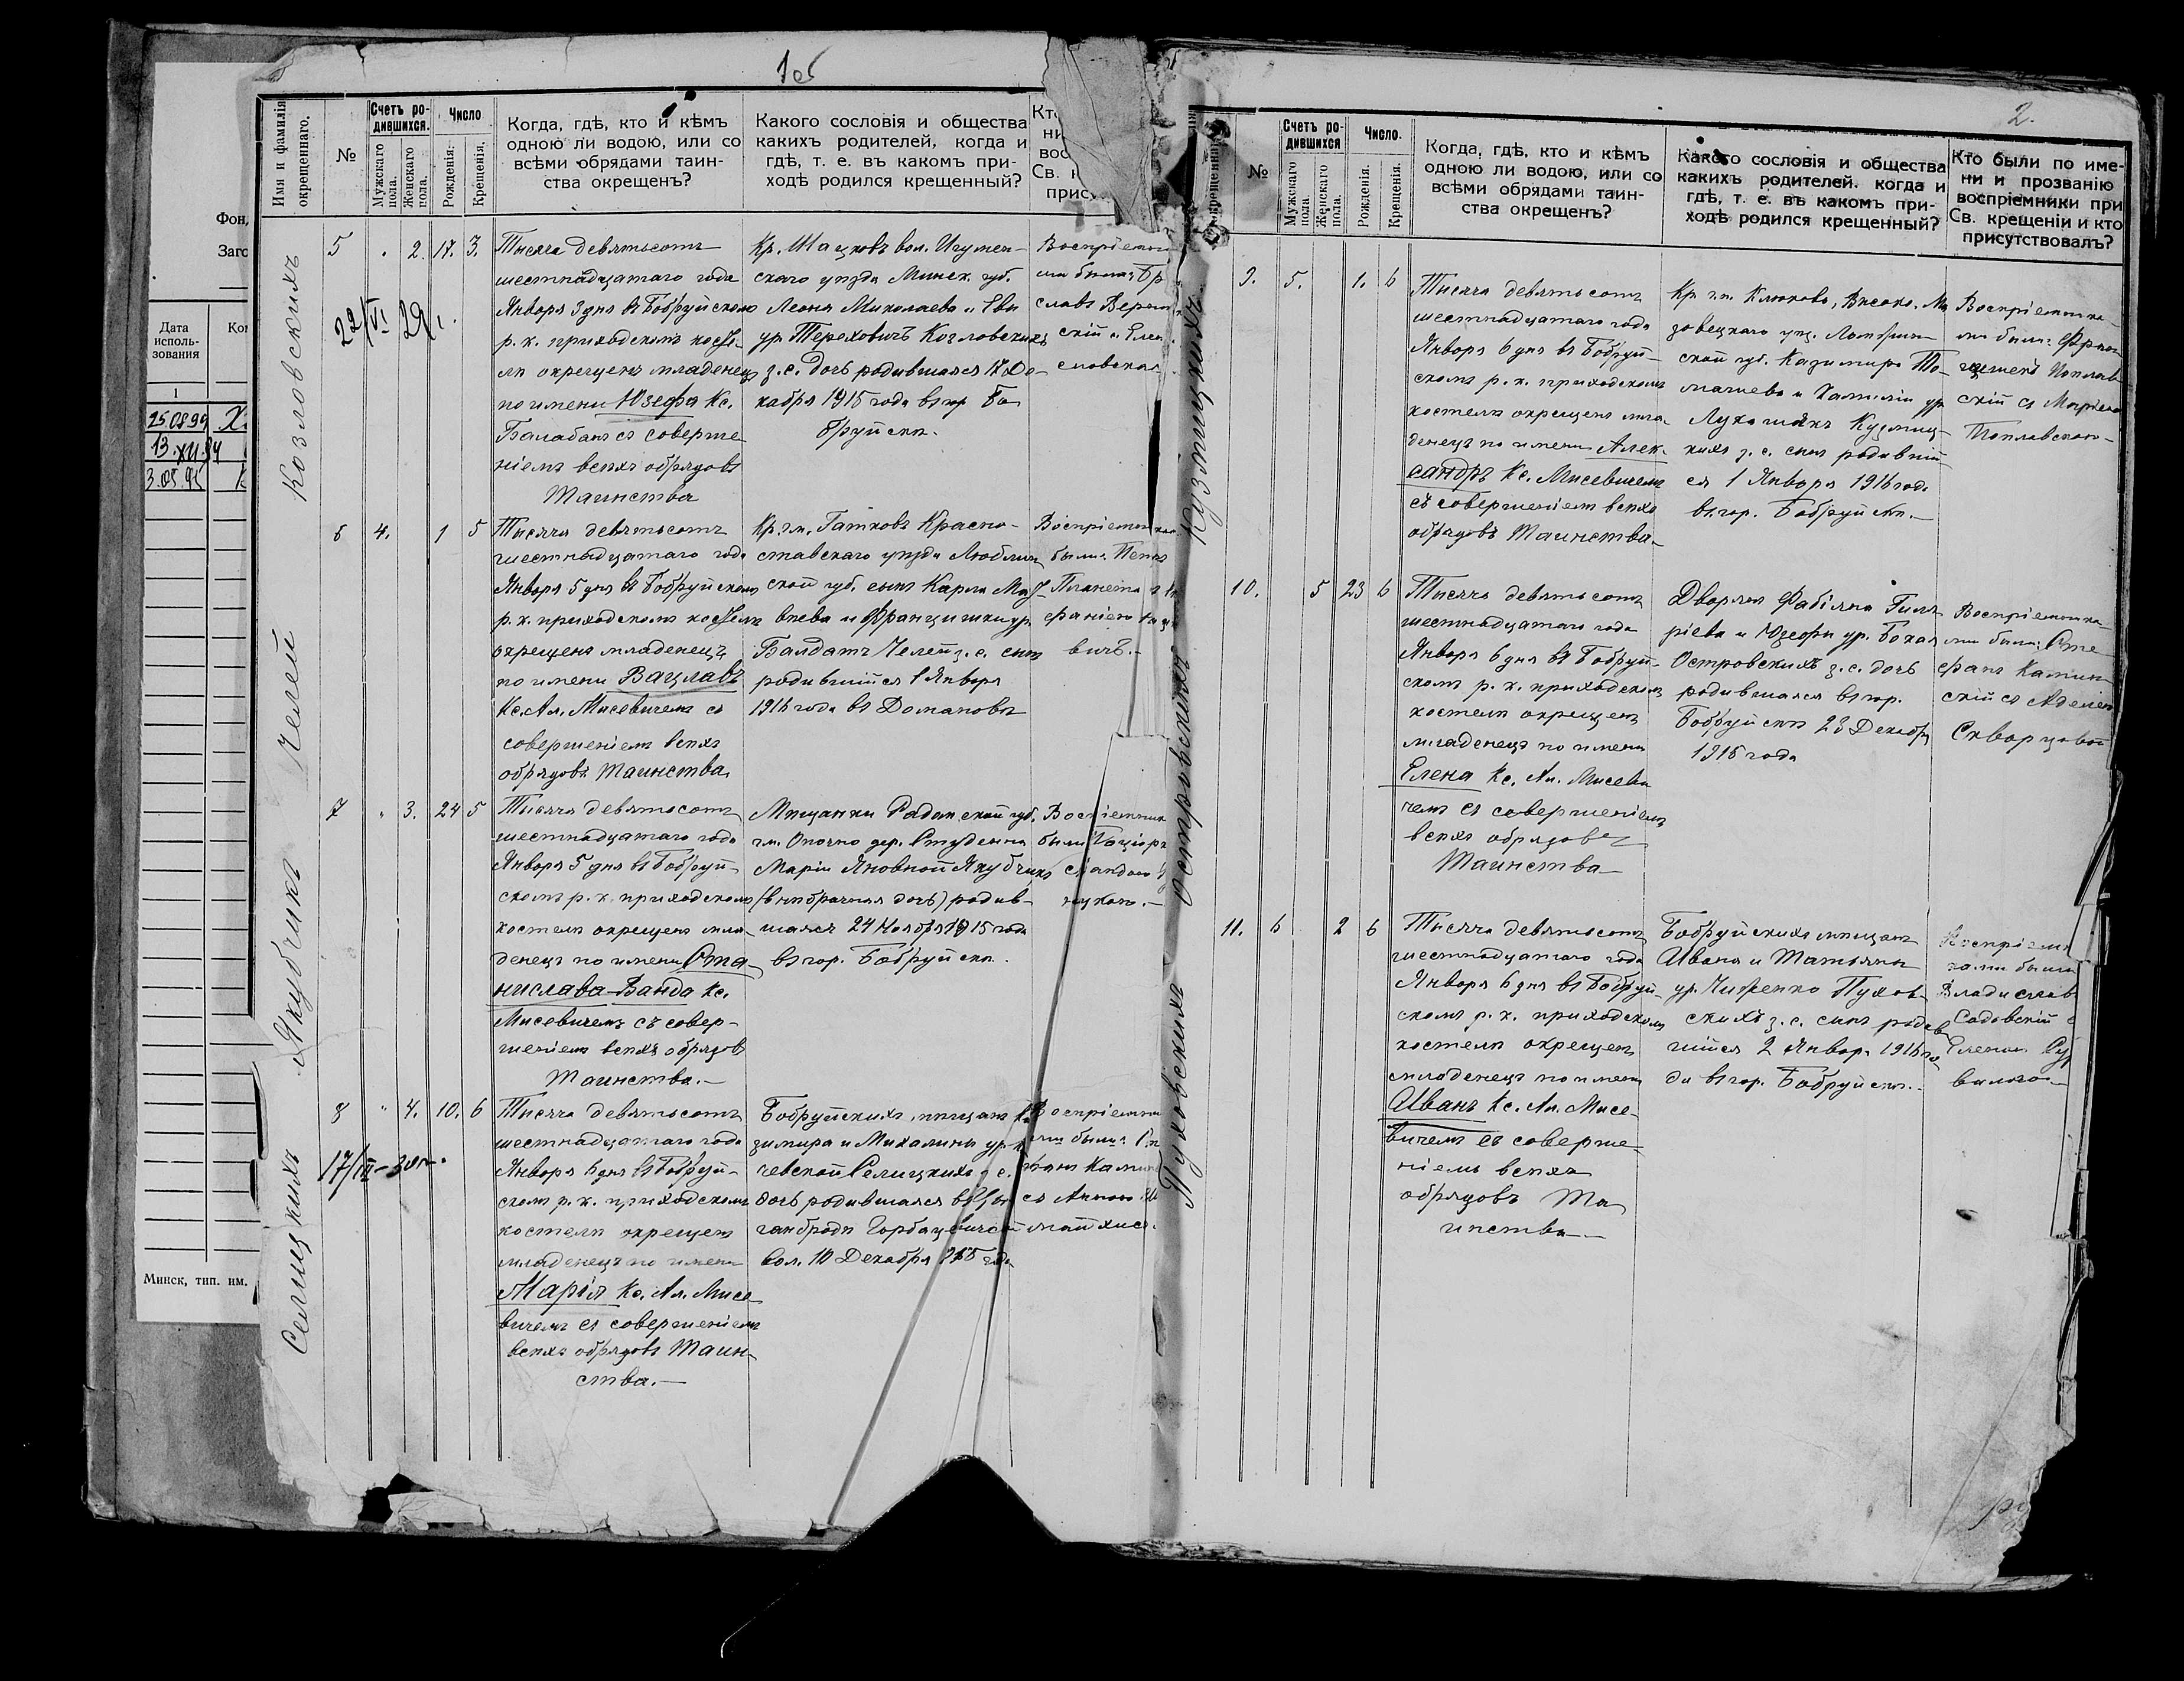 1об
2.
Фон
Заго
Дата
исполь-
зования
Ко
1
25.08.99
13.XII.94
3.05.9
Минск, тип. им.
Имя и фамилія
окрещеннаго.
№
Счетъ ро-
дившихся.
Мужскаго
пола.
Женскаго
пола.
Число
Рожденія.
Крещенія.
Когда, гдѣ, кто и кѣмъ
одною ли водою, или со
всѣми обрядами таин-
ства окрещенъ?
Какого сословія и общества
какихъ родителей, когда и
гдѣ, т. е. въ какомъ при-
ходѣ родился крещенный?
Кто
ни
вос
Св. к
прис
Козловскихъ
5 2. 17. 3.
22/VI
Тысяча девятьсотъ
шестнадцатаго года
Января 3 дня въ Бобруйскомъ
р. к. приходскомъ косте-
лѣ окрещенъ младенецъ
по имени Юзефа Кс.
Балабанъ съ соверше
ніемъ всѣхъ обрядовъ
Таинства
Кр. Шацковъ вол. Игумен-
скаго уѣзда Минск. губ.
Леона Миколаева и Евы
ур. Тереховичъ Козловскихъ
з. с. дочь родившаяся 17 Де-
кабря 1915 года въ гор. Бо
бруйскѣ.
Воспріемни
ми были: Бр
славъ Верем
скій и Елен
Челей
6 4. 1 5
Тысяча девятьсотъ
шестнадцатаго года
Января 5 дня въ Бобруйскомъ
р. к. приходскомъ костелѣ
окрещенъ младенецъ
по имени Вацлавъ
Кс. Ал. Мисевичемъ съ
совершеніемъ всѣхъ
обрядовъ Таинства.
Кр. гм. Гатковъ Красно-
ставскаго уѣзда Люблин
ской губ. сынъ Карла Мат-
вѣева и Францишки ур.
Балдатъ Челей з. с. сынъ
родившійся 1 Января
1916 года въ Домановѣ
Воспріемник
были: Петръ
фаніею
вичъ.-
Якубчикъ
7 3. 24 5
Тысяча девятьсотъ
шестнадцатаго года
Января 5 дня въ Бобруй-
скомъ р. к. приходскомъ
костелѣ окрещенъ мла-
денецъ по имени Ста-
нислава-Ванда Кс.
Мисевичемъ съ совер-
шеніемъ всѣхъ обрядовъ
Таинства.-
Мѣщанки Радомской губ.
гм. Опочно дер. Студенна
Маріи Яновной Якубчикъ
(внѣбрачная дочь) родив-
шаяся 24 Ноября 1915 года
въ гор. Бобруйскѣ.
Воспріемник
были
Селицкихъ
8 4. 10. 6
Тысяча девятьсотъ
шестнадцатаго года
Января 6 дня въ Бобруй-
скомъ р. к. приходскомъ
костелѣ окрещенъ
младенецъ по имени
Марія Кс. Ал. Мисе
вичемъ съ совершеніемъ
всѣхъ обрядовъ Таин-
ства.-
Бобруйскихъ мѣщанъ Ка
зимира и Михалины ур.
чевской Селицкихъ з. с.
дочь родившаяся въ
ганбродѣ Горбацевичской
вол. 10 Декабря 1915 года
Воспріемни
ми были:
съ Анною
№
Счетъ ро-
дившихся
Мужскаго
пола
Женскаго
пола.
Число.
Рожденія.
Крещенія.
Когда, гдѣ, кто и кѣмъ
одною ли водою, или со
всѣми обрядами таин-
ства окрещенъ?
Какого сословія и общества
какихъ родителей. когда и
гдѣ, т. е. въ какомъ при-
ходѣ родился крещенный?
Кто были по име-
ни и прозванію
воспріемники при
Св. крещеніи и кто
присутствовалъ?
Кузмицкихъ
9. 5. 1. 6
Тысяча девятьсотъ
шестнадцатаго года
Января 6 дня въ Бобруй-
скомъ р. к. приходскомъ
костелѣ окрещенъ мла-
денецъ по имени Алек-
сандръ Кс. Мисевичемъ
съ совершеніемъ всѣхъ
обрядовъ Таинства.-
Кр. гм. Клюково, Высоко-Ма
зовецкаго уѣз. Ломжин-
ской губ. Казимира То-
машева и Камиліи ур
Лукошякъ Кузмиц-
кихъ з. с. сынъ родивший
ся 1 Января 1916 года
въ гор. Бобруйскѣ.-
Воспріемника-
ми были: Фран
цишекъ Поплав
скій съ Маріею
Поплавскою-
Островскихъ
10. 5 23 6
Тысяча девятьсотъ
шестнадцатаго года
Января 6 дня въ Бобруй-
скомъ р. к. приходскомъ
костелѣ окрещенъ
младенецъ по имени
Елена Кс. Ал. Мисеви
чемъ съ совершеніемъ
всѣхъ обрядовъ
Таинства-
Дворянъ Фабіяна Гиля
ріева и Юзефы ур. Бохан
Островскихъ з. с. дочь
родившаяся въ гор.
Бобруйскѣ 23 Декабря
1915 года
Воспріемника-
ми были: Сте
фанъ Камин
скій съ Аделею
Скворцовой
Пуховскихъ
11. 6 2 6
Тысяча девятьсотъ
шестнадцатаго года
Января 6 дня въ Бобруй-
скомъ р. к. приходскомъ
костелѣ окрещенъ
младенецъ по имени
Иванъ Кс. Ал. Мисе-
вичемъ съ соверше-
ніемъ всѣхъ
обрядовъ Та
инства-
Бобруйскихъ мѣщанъ
Ивана и Татьяны
ур. Пухов-
скихъ з. с. сынъ родив
шійся 2 Января 1916 го
да въ гор. Бобруйскѣ.-
Воспріемни
ками были
Владиславъ
Садовскій с
Еленою